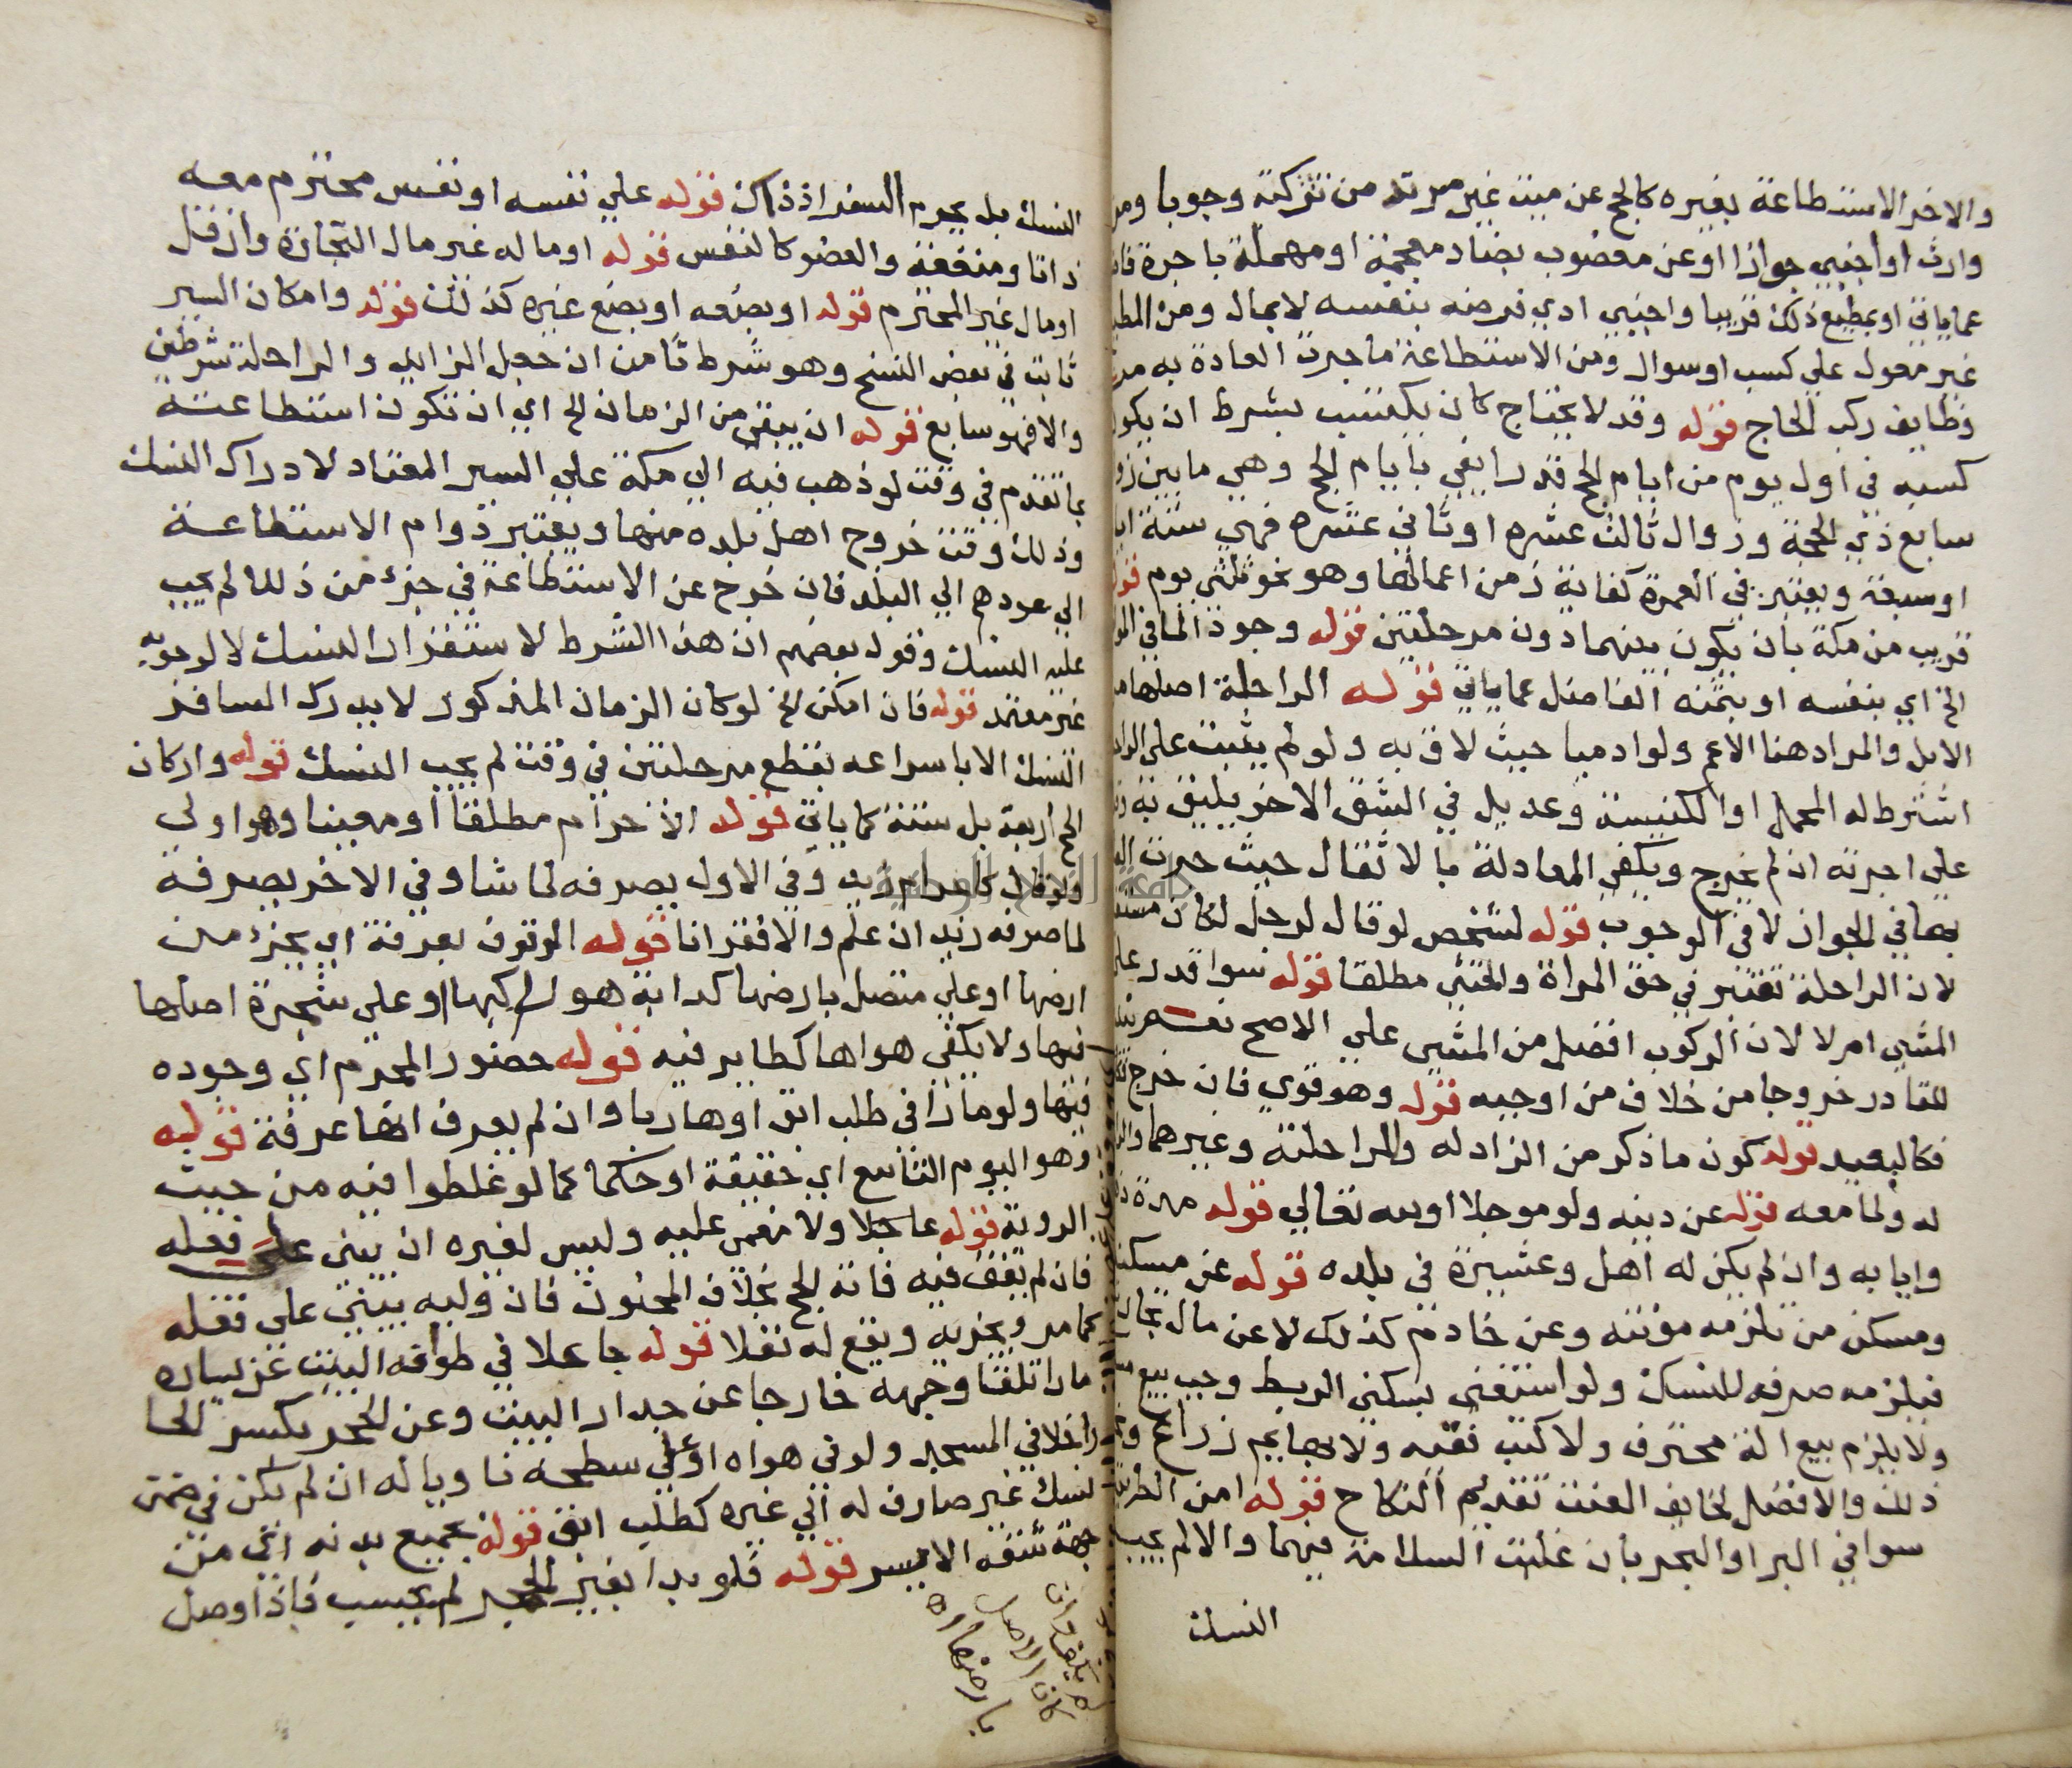 والاخر الاستطاعة بغيره كالحج عن ميت غير مرتد من تركته وجوبا ومن
وارث او اجنبي جوازا او عن معضوب بضاد معجمة او مهملة باجرة فاضلة
عما ياتي او بمطيع ذلك قريبا واجنبي ادي فرضه بنفسه لا بمال ومن المطيع
غير معول علي كسب او سوال ومن الاستطاعة ما جرت العادة به من
وظايف ركب الحاج قوله وقد لا يحتاج كان يكتسب بشرط ان يكون
كسبه في اول يوم من ايام الحج قدرا يفي بايام الحج وهي ما بين زوال
سابع ذي الحجة وزوال ثالث عشره او ثاني عشره فهي ستة ايام
او سبعة ويعتبر في العمرة كفاية زمن اعمالها وهو نحو ثلثي يوم قوله
قريب من مكة بان يكون بينهما دون مرحلتين قوله وجوز الما في
الخ اي بنفسه او بثمنه الفاضل عما ياتي قوله الراحلة اصلها من
الابل والمراد هنا الاعم ولو ادميا حيث لاق به ولو لم يثبت على
اشترط له المحمل او الكنيسة وعديل في الشق الاخر يليق به
على اجرته ان لم يخرج ويكفي المعادلة بالاثقال حيث جرت
بها في الجواز لا في الوجوب قوله لشخص لو قال لرجل لكان
لان الراحلة تعتبر في حق المراة والخنثي مطلقا قوله سوا قدر على
المشي ام لا لان الركوب افضل من المشي علي الاصح نعم
للقادر خروجا من خلاف من اوجبه قوله وهو قوي فان خرج
فكالبعيد قوله كون ما ذكر من الزاد له والراحلة وغيرهما
له ولما معه قوله عن دينه ولو موجلا او لله تعالي قوله مدة
وايابه وان لم يكن له اهل وعشيرة في بلده قوله عن مسكنه
ومسكن من تلزمه مؤنته وعن خادم كذلك لا عن مال تجارة
فيلزمه صرفه للنسك ولو استغنى بسكنى الربط وجب بيع
ولا يلزم بيع الة محترف ولا كتب فقيه ولا بهايم زراع
ذلك والافضل لخايف العنت تقديم النكاح قوله امن الطريق
سوا في البر او البحر بان غلبت السلامة فيهما والا لم يجب
النسك
النسك بل يحرم السفر اذ ذاك قوله علي نفسه او نفس محترم معه
ذاتا ومنفعة والعضو كالنفس قوله او ماله غير مال التجارة وان قل
او مال غير المحترم قوله او بضعه او بضع غيره كذلك قوله وامكان السير
ثابت في بعض النسخ وهو شرط ثامن ان جعل الزاد والراحلة شرطين
والا فهو سابع قوله ان يبقى من الزمان الخ اي ان تكون استطاعته
بما تقدم في وقت لو ذهب فيه الي مكة علي السير المعتاد لادراك النسك
وذلك وقت خروج اهل بلده منها ويعتبر دوام الاستطاعة
الي عودهم الي البلد فان خرج عن الاستطاعة في جزء من ذلك لم يجب
عليه النسك وقول بعضهم ان هذا الشرط لاستقرار النسك لا لوجوبه
غير معتمد قوله فان امكن الخ لو كان الزمان المذكور لا يدرك المسافر
النسك الا باسراعه بقطع مرحلتين في وقت لم يجب النسك قوله واركان
الحج اربعة بل ستة كما ياتي قوله الاحرام مطلقا او معينا وهو اولي
ولو قال كاحرام زيد وفي الاول يصرفه لما شا وفي الاخر يصرفه
لما صرفه زيد ان علم والا فقرانا قوله الوقوف بعرفة اي بجزء من
ارضها او علي متصل بارضها كدابة هو راكبها او علي شجرة اصلها
فيها ولا يكفي هواها كطاير فيه قوله حضور المحرم اي وجوده
فيها ولو مارا في طلب ابق او هاربا وان لم يعرف انها عرفة قوله
وهو اليوم التاسع اي حقيقة او حكما كما لو غلطوا فيه من حيث
الروية قوله عاجلا ولا مغمى عليه وليس لغيره ان يبنى على فعله
فان لم يقف فيه فاته الحج بخلاف المجنون فان وليه يبني على فعله
كما مر ويجزيه ويقع له نفلا قوله جاعلا في طوافه البيت عن يساره
مارا تلقا وجهه خارجا عن جدار البيت وعن الحجر بكسر الحا
داخلا في المسجد ولو في هواه او علي سطحه ناويا له ان لم يكن في ضمن
نسك غير صارف له الي غيره كطلب ابق قوله بجميع بدنه اي من
جهة شقه الايسر قوله فلو بدا بغير الحجر لم يحسب فاذا وصل